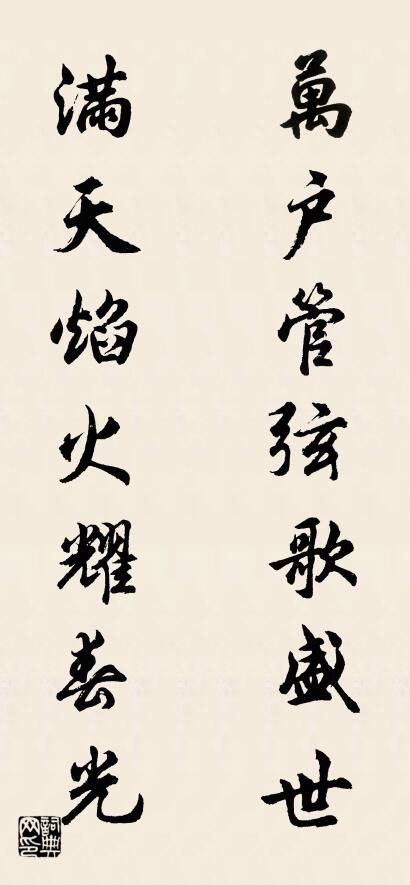 萬户管弦歌盛世
满天焰火耀春光
詞典网印